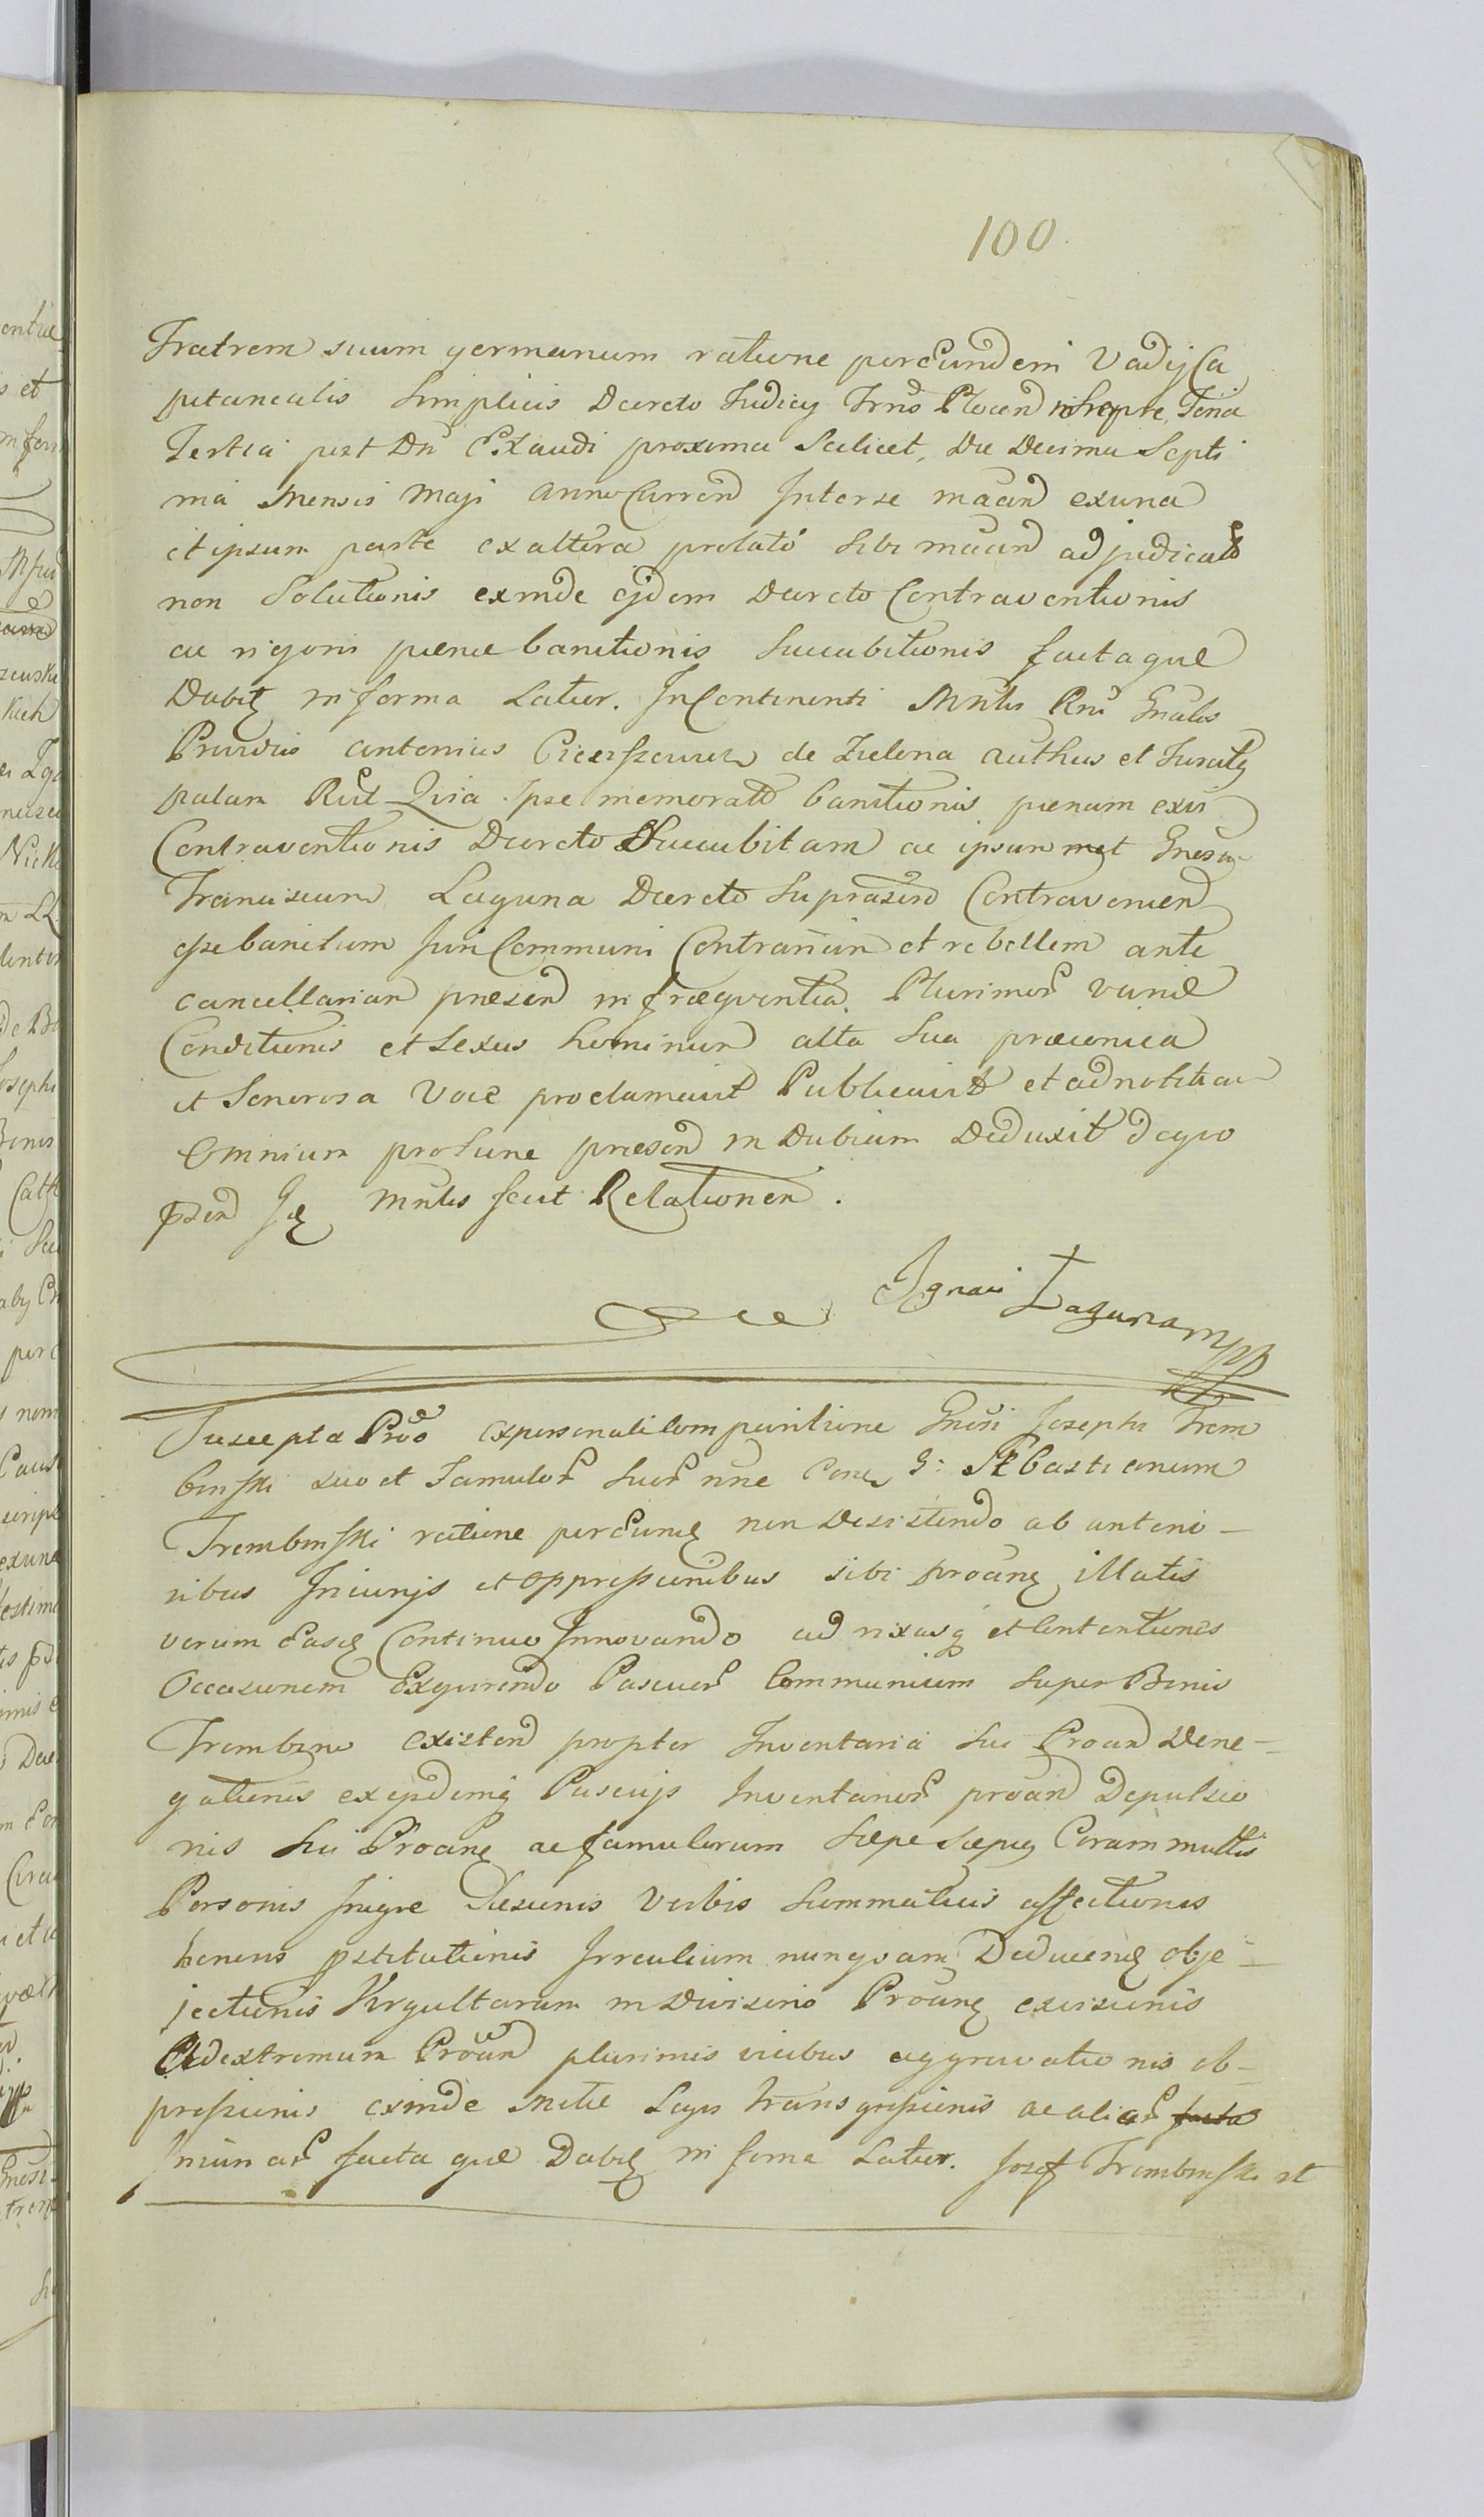 100
Fratrem suum germanum ratione per eundem Vadij Ca
pitanealis Simplicis Decreto Judicy Trns Plocen Feria
Tertia post Dn Exaudi proxima Scilicet, Die Decima Septi
ma Mensis Maji Anno Curren Inter se maan ex una
et ipsum parte ex altera prolato sibi maan adjudicato
non Solutionis exinde ejdem Decreto Contraventionis
ac rigoris paenae banitionis Succubitionis facta que
Dabit in forma Latior. In Continenti Mnlis Rni Gnalis
Providus Antonius de Zielona authus et Juratus
palam Quia Ipse memorato banitionis paenam exvi
Contraventionis Decreto Succubitam ac ipsummet Gnesum
Franciscum Laguna Decreto Suprascro Contravenien
esse banitum Juri Communi Contrarium et rebellem ante
cancellariam praesen in fraequentia Plurimor variae
Conditionis et Sexus hominum alta Sua praeconica
et Sonorosa Voce proclamavit Publicavit et ad notitiam
Omnium pro tunc praesen in Dubium Deduxit de quo
pzen Mnlis fecit Relationem.
Ignaci Laguna mpp
Suscepta Prov ex personali Comparitione Gnesi Josephi Trem
binski suo et Famulor suor nne Cone G: Sebastianum
Trembinski ratione per eunde non Desistendo ab anterio-
ribus Iniurijs et oppressionibus sibi proane illatis
verum Easde Continuo Innovando ad rixasq et Contentiones
Occasionem Exquirendo Pascuor Communium super Bonis
Trembino existen propter Inventaria sui Proan Dene-
gationis ex ejsdemq Pascujs Inventarior proan Depulsio
nis sui Proane ac famulorum saepe saepius Coram multis
Personis Inigre Laesionis Verbis Summaticis affectionis
honoris pstitutionis Irreulium nunquam Deducene obje-
jectionis Virgultarum in Divisino Proane excisionis
Ad extremum Proan plurimis vicibus aggravationis ob-
pressionis exinde Metae Legis transgressionis ac aliar facta
Iniuriar facta que Dabit in forma Latior. Josef Trembinski st